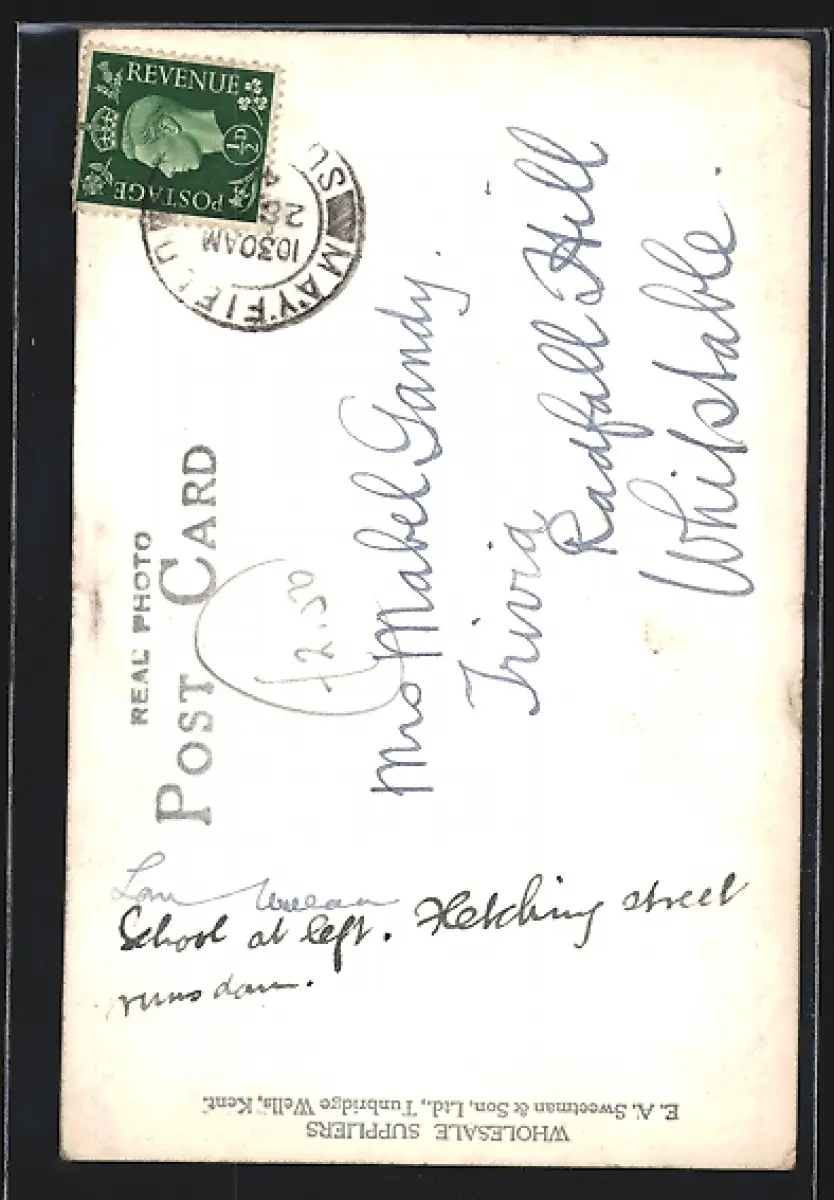 REVENUE
½D
POSTAGE
MAYFIELD
1030AM
REAL PHOTO
POST CARD
£2.50
Mrs Mabel Gandy.
Trivia
Radfall Hill
Whitstable.
School at left. Fletching street
runs down.
WHOLESALE SUPPLIERS
E. A. Sweetman & Son, Ltd., Tunbridge Wells, Kent.